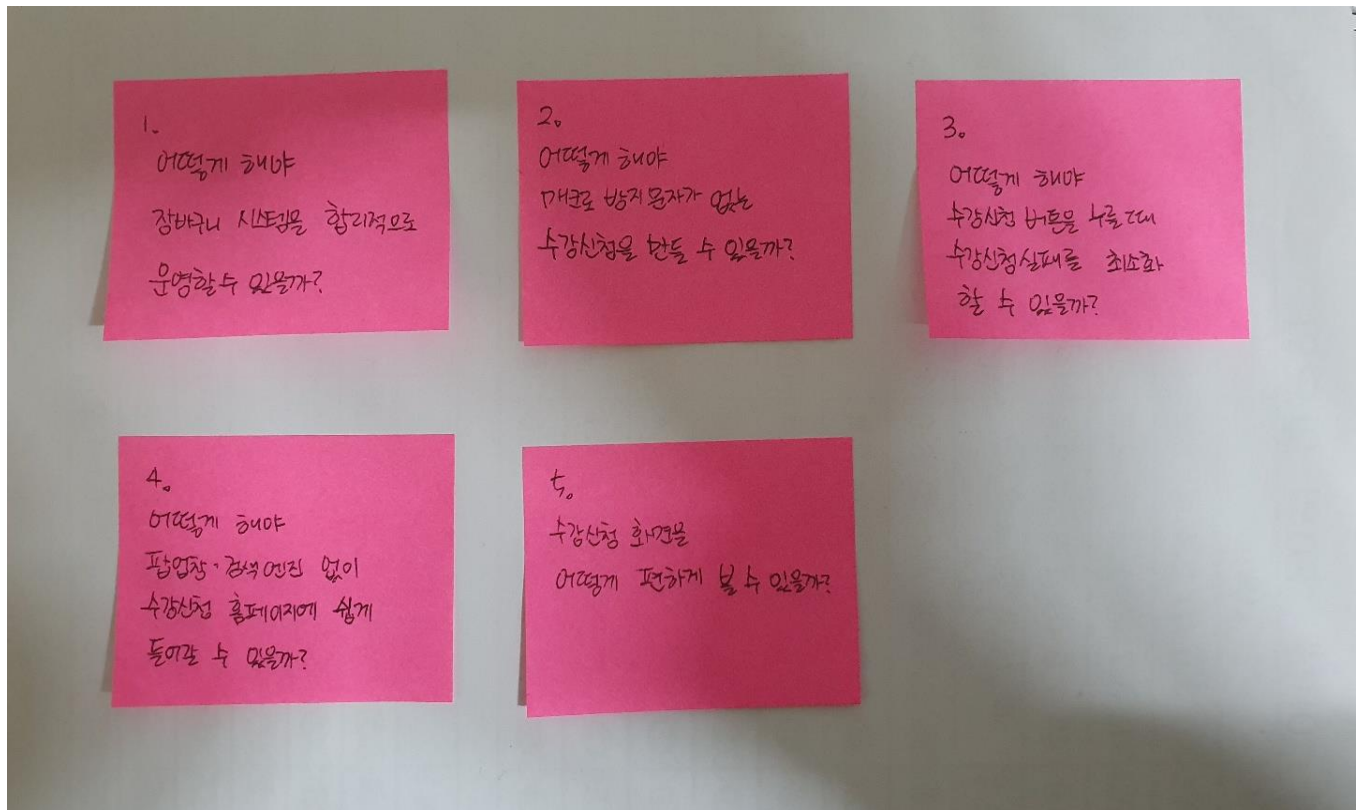 1.
어떻게 해야
장바구니 시스템을 합리적으로
운영할 수 있을까?
2.
어떻게 해야
매크로 방지 문자가 없는
수강신청을 만들 수 있을까?
3.
어떻게 해야
수강신청 버튼을 누를 때
수강신청실패를 최소화
할 수 있을까?
4.
어떻게 해야
팝업창·검색엔진 없이
수강신청 홈페이지에 쉽게
들어갈 수 있을까?
5.
수강신청 화면을
어떻게 편하게 볼 수 있을까?